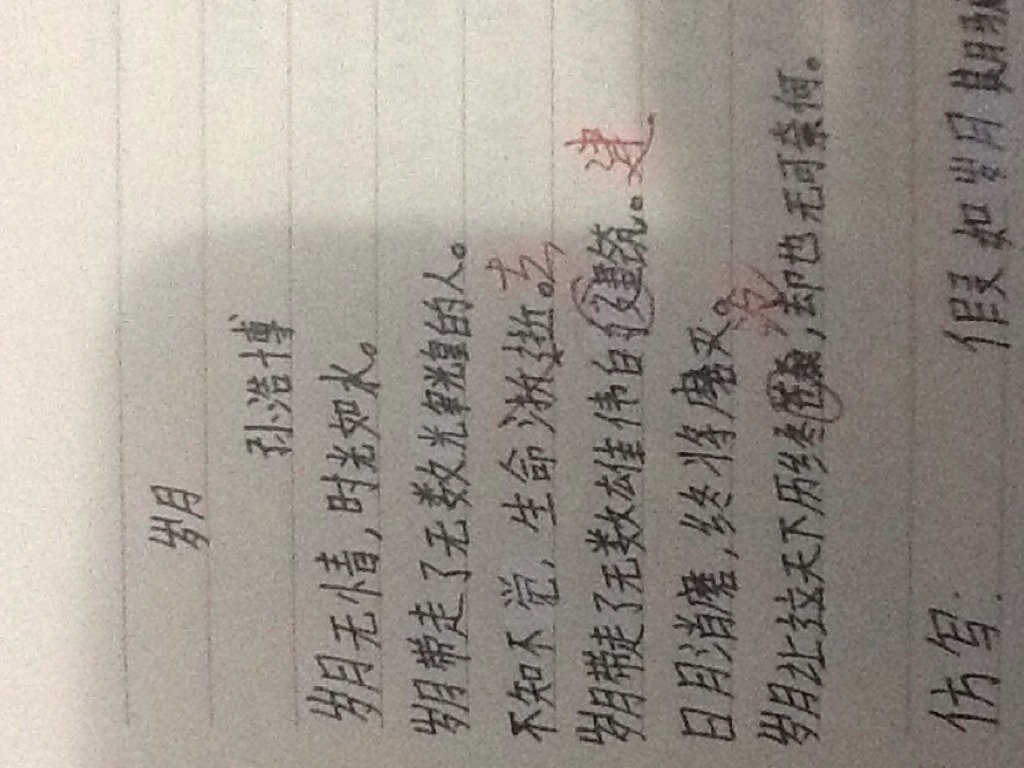 岁月
孙浩博
岁月无情，时光如水。
岁月带走了无数光辉煌的人。
不知不觉，生命渐逝。去
岁月带走了无数雄伟的建筑。建
日月消磨，终将磨灭。
岁月让这天下历终，却也无可奈何。
仿写：
假如岁月